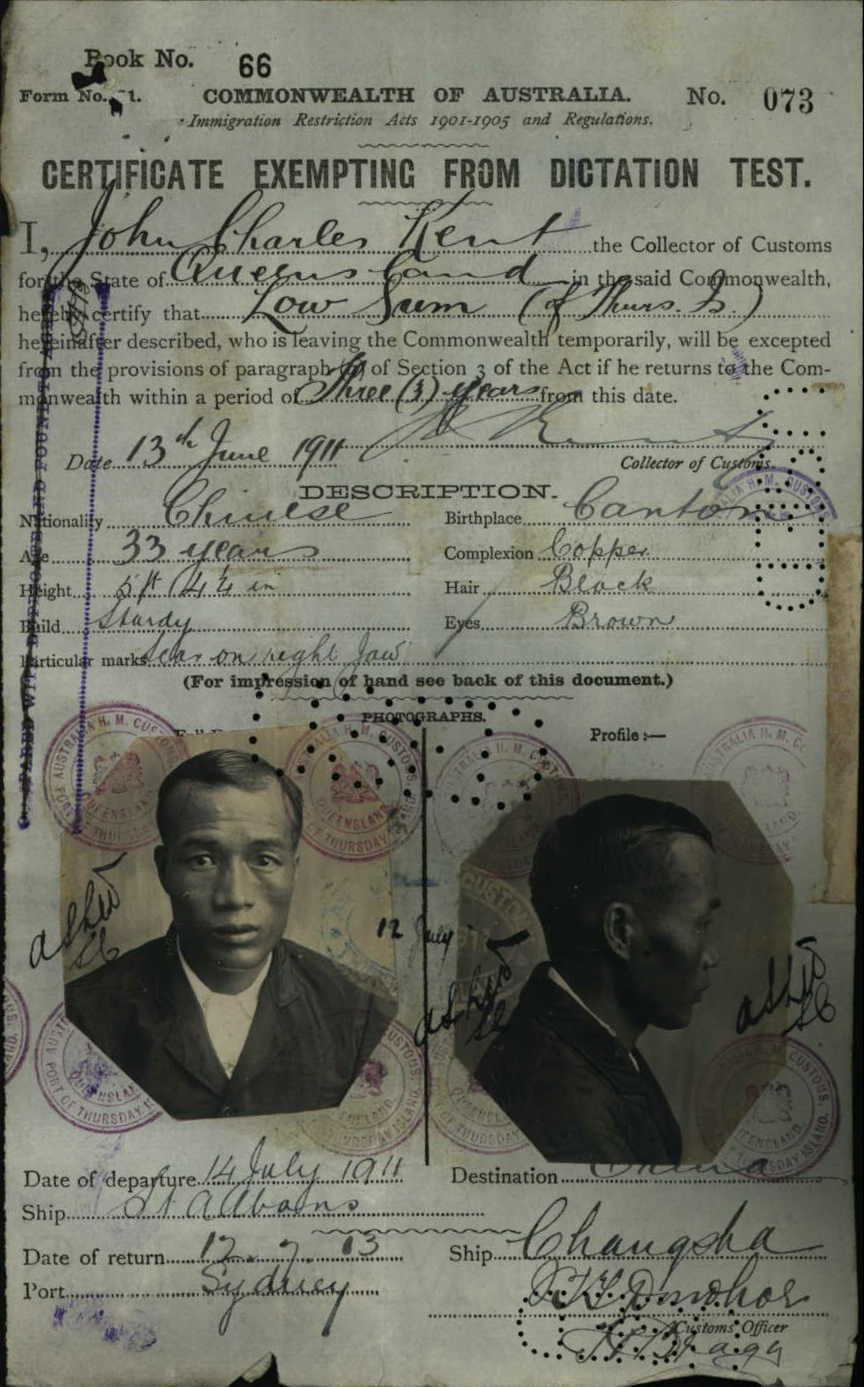 Book No. 66
Form No. 21. COMMONWEALTH OF AUSTRALIA. No. 073
Immigration Restriction Acts 1901-1905 and Regulations.
CERTIFICATE EXEMPTING FROM DICTATION TEST.
I, John Charles Kent the Collector of Customs
for the State of Queensland in the said Commonwealth,
hereby certify that Low Sum (of Thurs. Is.)
hereinafter described, who is leaving the Commonwealth temporarily, will be excepted
from the provisions of paragraph of Section 3 of the Act if he returns to the Com-
monwealth within a period of Three (3) years from this date.
Date 13th June 1911
Collector of Customs.
DESCRIPTION.
Nationality Chinese Birthplace Canton
Age 33 years Complexion Copper
Height 5ft 4¼ in Hair Black
Build Sturdy Eyes Brown
Particular marks Scar on right Jaw
(For impression of hand see back of this document.)
PHOTOGRAPHS.
Profile :—
12 July
Date of departure 14 July 1911 Destination China
Ship St Albans
Date of return 12. 7. 13 Ship Changsha
Port Sydney
Customs Officer